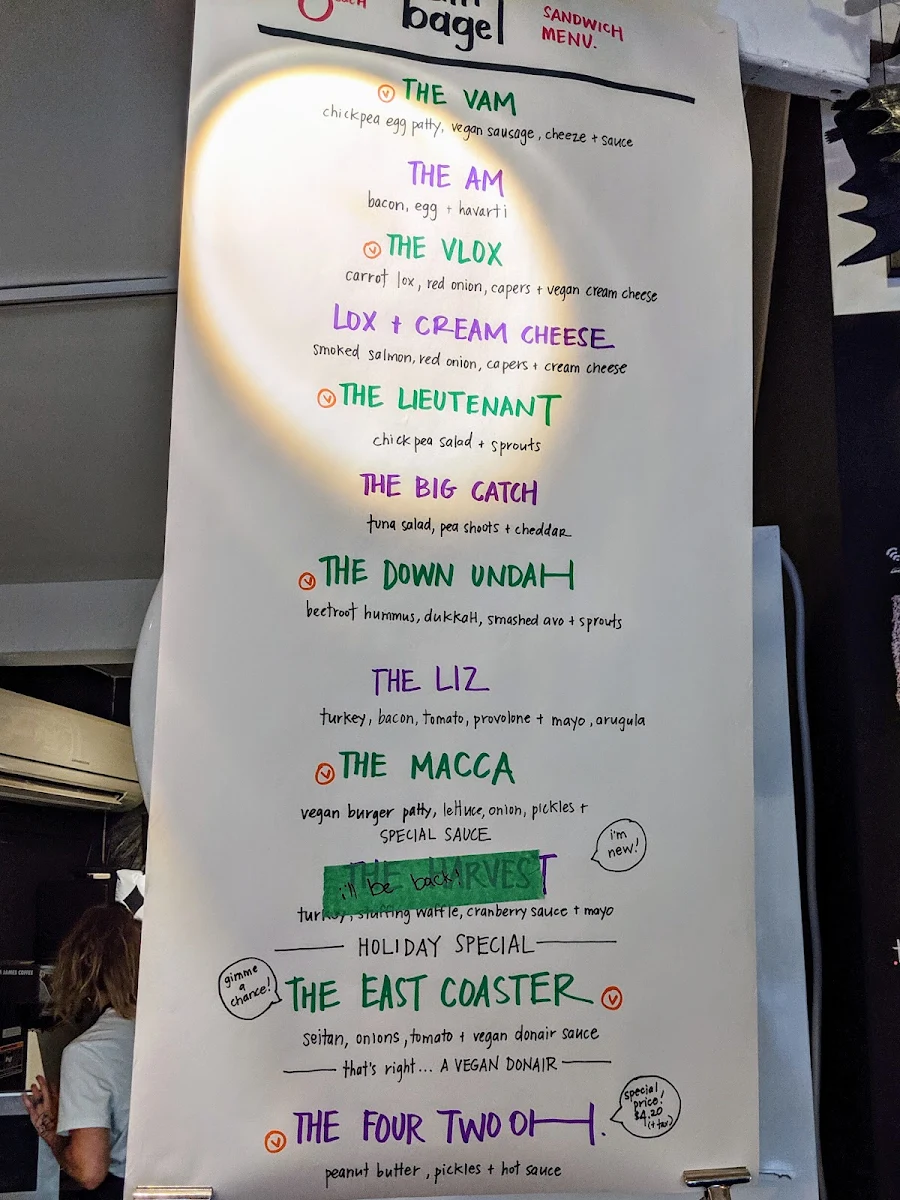 bagel
SANDWICH
MENU.
Ⓥ THE VAM
chickpea egg patty, vegan sausage, cheeze + sauce
THE AM
bacon, egg + havarti
Ⓥ THE VLOX
carrot lox, red onion, capers + vegan cream cheese
LOX + CREAM CHEESE
smoked salmon, red onion, capers + cream cheese
Ⓥ THE LIEUTENANT
chickpea salad + sprouts
THE BIG CATCH
tuna salad, pea shoots + cheddar
Ⓥ THE DOWN UNDAH
beetroot hummus, dukkaH, smashed avo + sprouts
THE LIZ
turkey, bacon, tomato, provolone + mayo, arugula
Ⓥ THE MACCA
vegan burger patty, lettuce, onion, pickles +
SPECIAL SAUCE
i'm
new!
THE HARVEST
i'll be back!
turkey, stuffing waffle, cranberry sauce + mayo
HOLIDAY SPECIAL
gimme
a
chance!
THE EAST COASTER Ⓥ
seitan, onions, tomato + vegan donair sauce
that's right... A VEGAN DONAIR
Ⓥ THE FOUR TWO OH.
special
price!
$4.20
(+ tax)
peanut butter, pickles + hot sauce